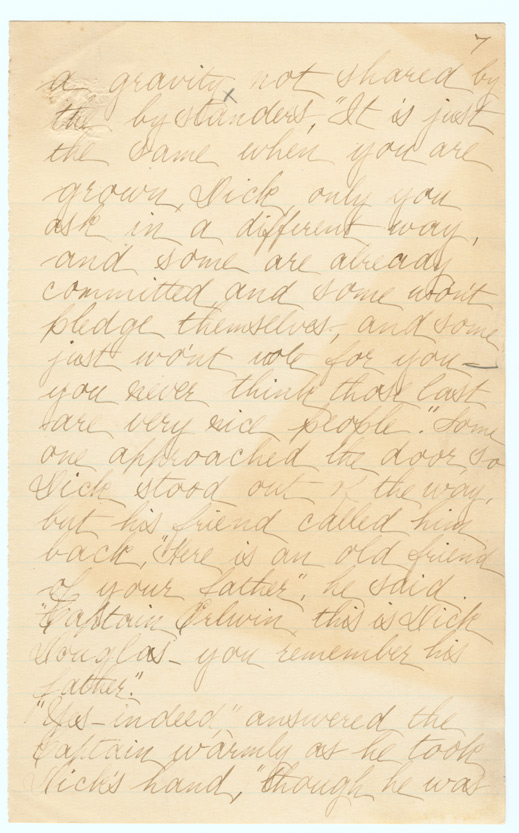 7
a gravity not shared by
the bystanders, "It is just
the same when you are
grown, Dick, only you
ask in a different way,
and some are already
committed and some won't
pledge themselves, and some
just won't vote for you—
you never think those last
are very nice people." Some
one approached the door, so
Dick stood out of the way,
but his friend called him
back, "Here is an old friend
of your father", he said.
"Captain Erlwin, this is Dick
Douglas— you remember his
father."
"Yes—indeed," answered the
Captain warmly as he took
Dick's hand, "though he was